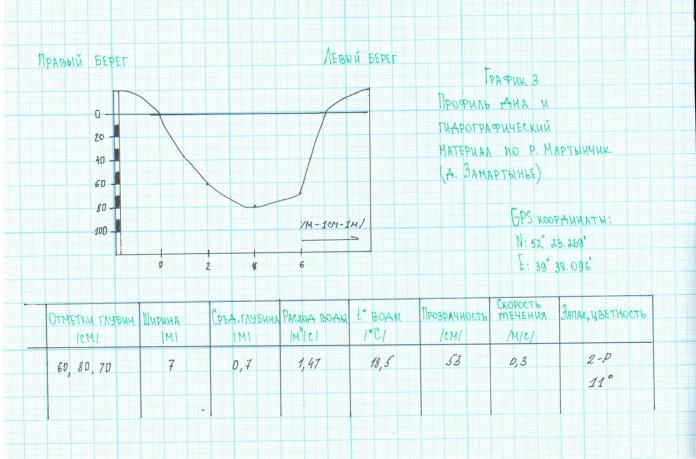 Правый берег
Левый берег
График 3
Профиль дна и
гидрографический
материал по р. Мартынчик
(д. Замартынье)
GPS координаты:
N: 52° 23.269'
E: 39° 38.096'
0
20
40
60
80
100
/м-1см-1м/
0 2 4 6
Отметки глубин /см/
Ширина /м/
Сред.глубина /м/
Расход воды /м³/с/
t° воды /°C/
Прозрачность /см/
Скорость течения /м/с/
Запах, цветность
60, 80, 70
7
0,7
1,47
18,5
53
0,3
2-Р
11°